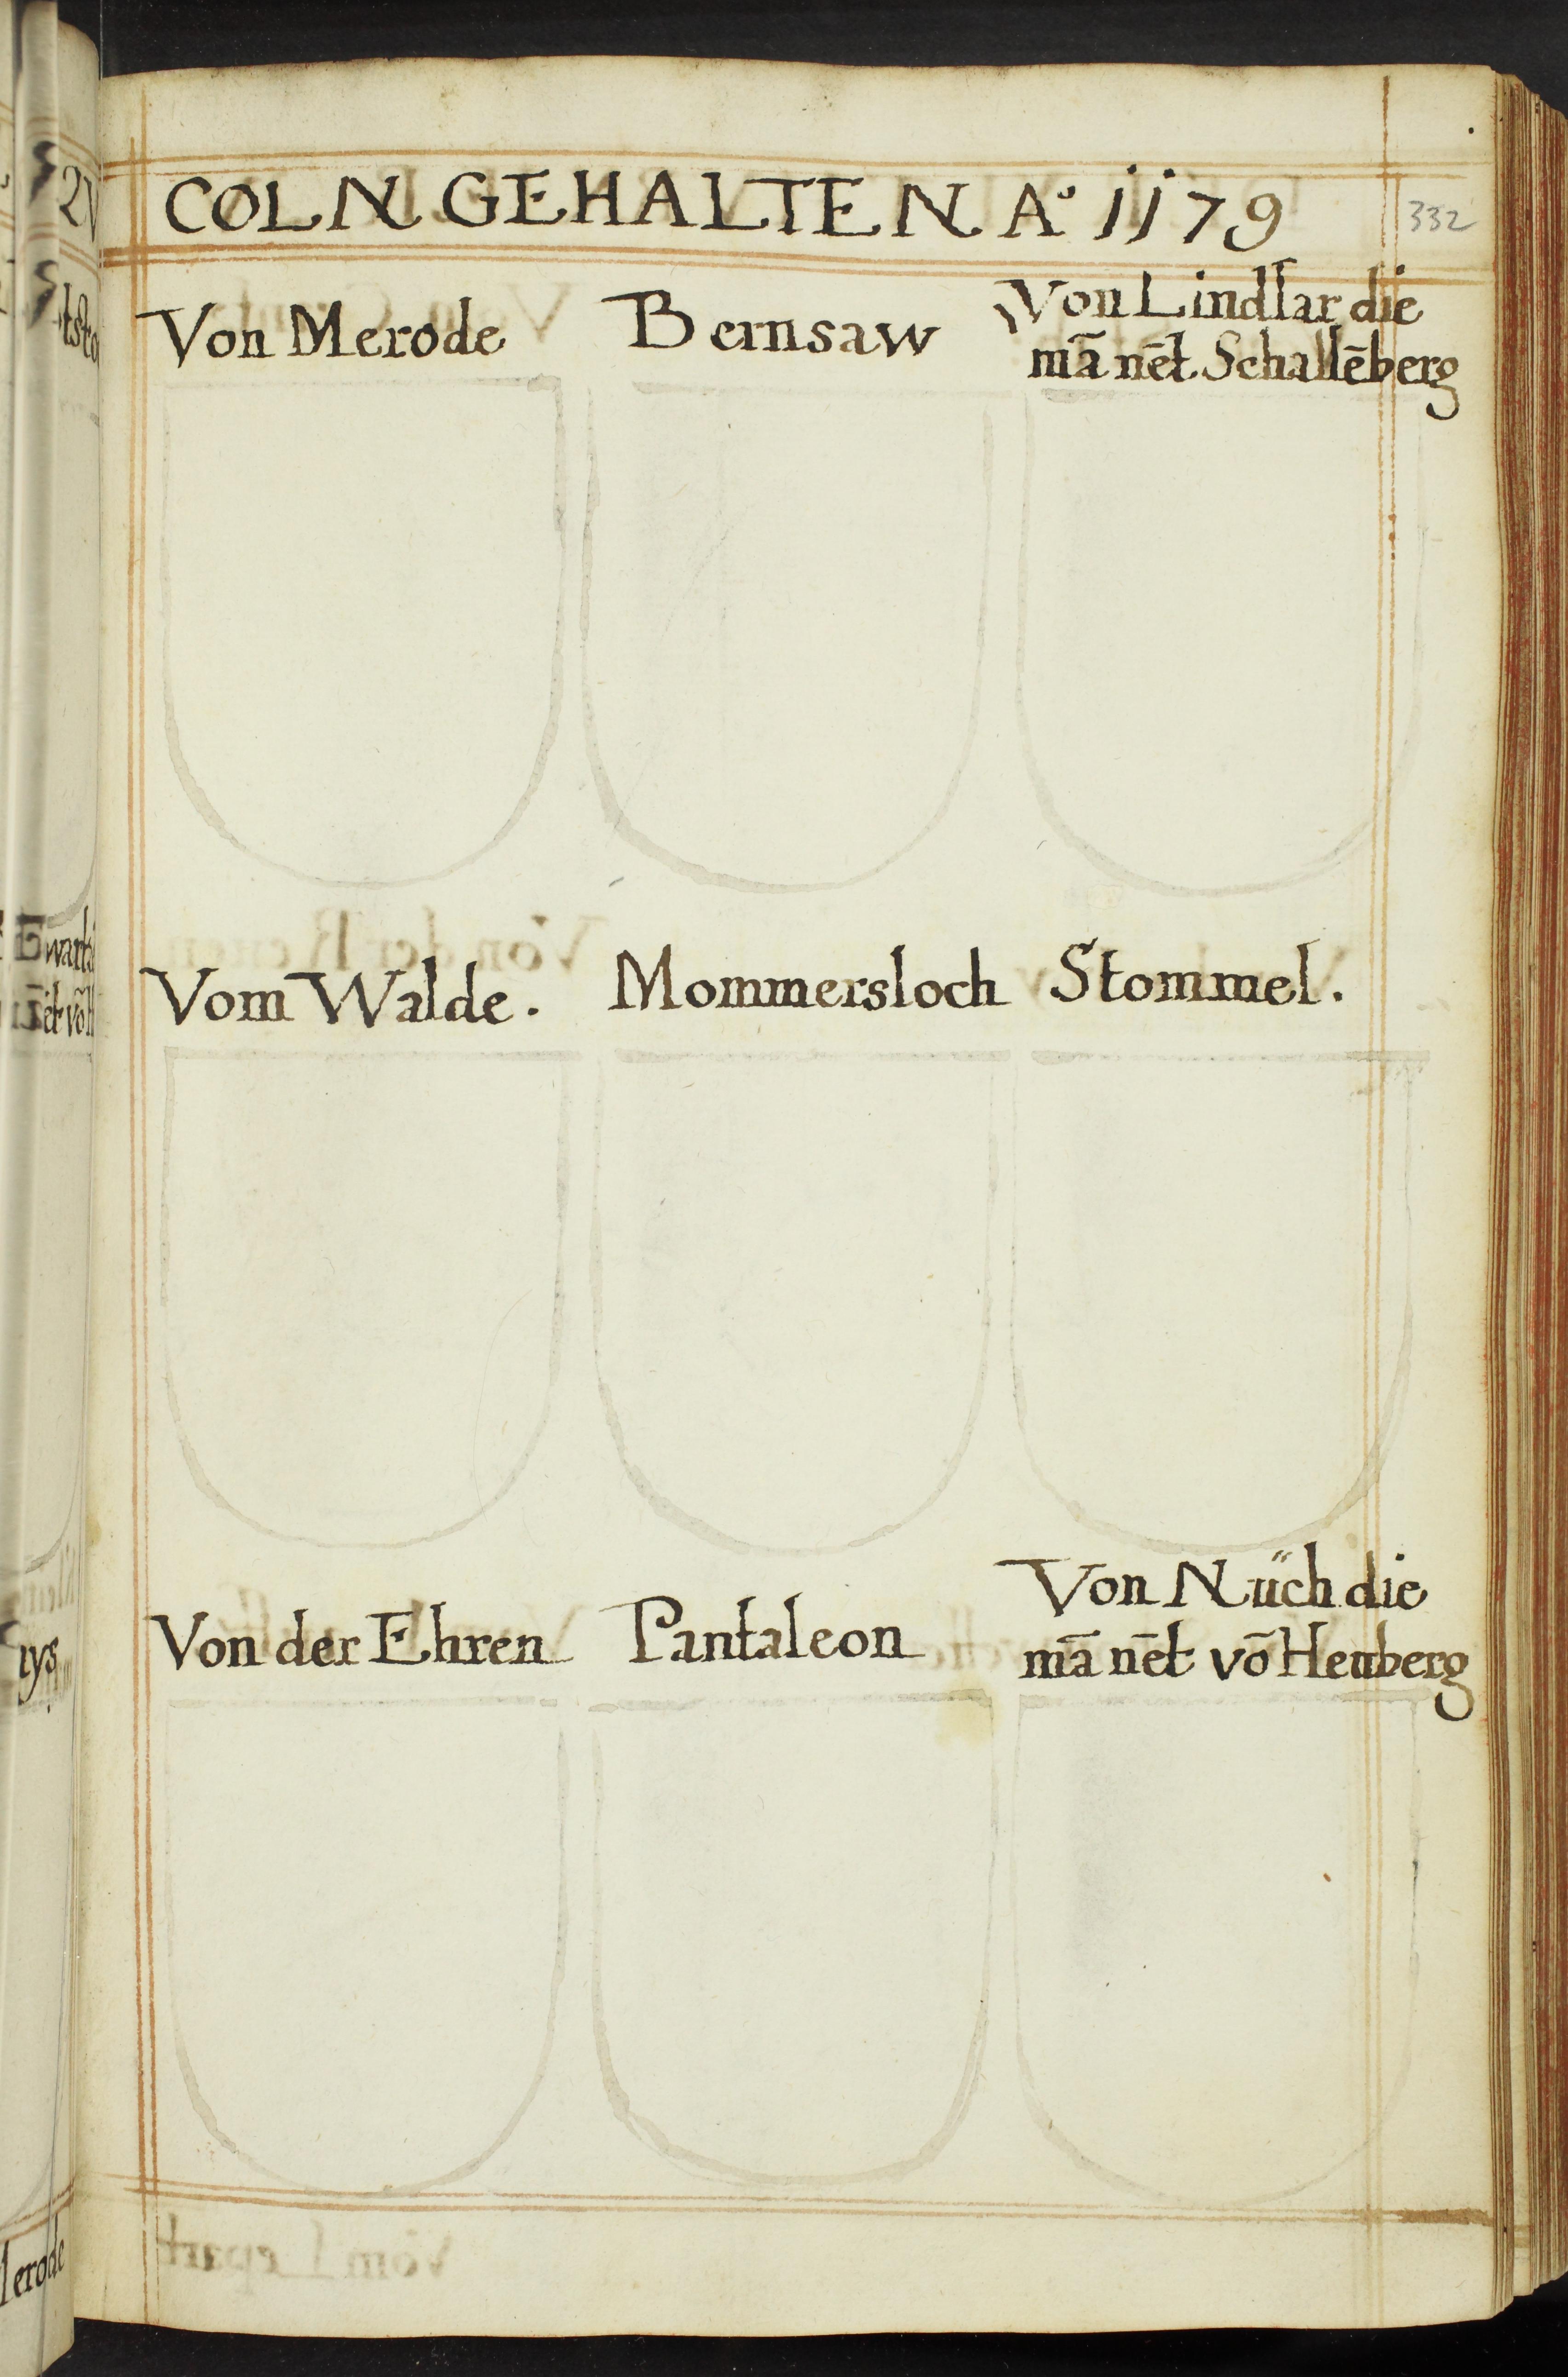 COLN GEHALTEN A° 1179
332
Von Merode
Bernsaw
Von Lindlar die
mā nēt Schallēberg
Vom Walde.
Mommersloch
Stommel.
Von der Ehren
Pantaleon
Von Nüch die
mā nēt vō Heuberg